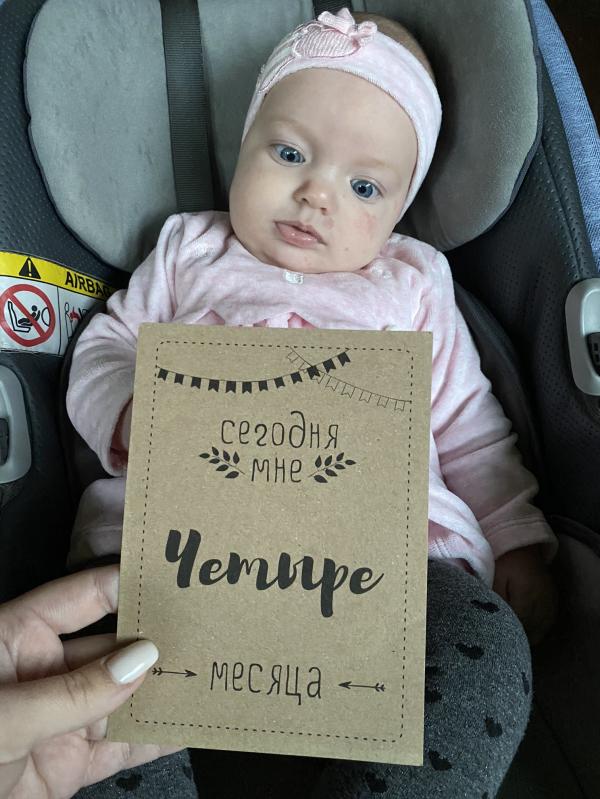 AIRBA
сегодня
мне
Четыре
месяца